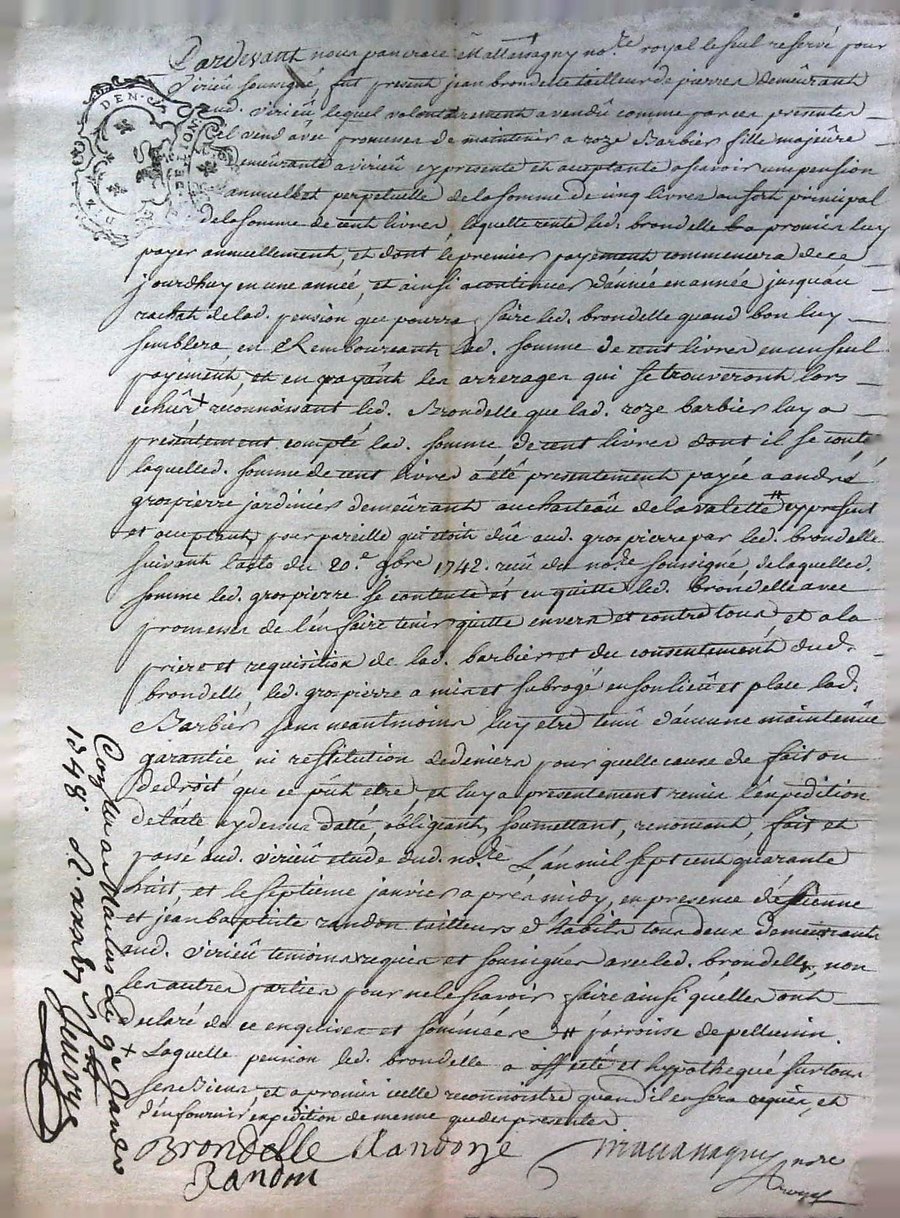 Pardevant nous pancrace Mallemagny no.re royal le seul reservé pour
Virieû soussigné, fut present jean brondelle tailleur de pierres demeûrant
aud. Virieû lequel volontairement a vendû comme par ces presentes
il vend avec promesses de maintenir a roze Barbier fille majeûre
demeûrante a virieû cy presente et acceptante asçavoir une pension
annuelle et perpetuelle de la somme de cinq livres au sort principal
de la somme de cent livres, laquelle rente led. brondelle a promis luy
payer annuellement, et dont le premier payement commencera de ce
jourdhuy en une année, et ainsi a continuer d'année en année jusqu'au
rachat de lad. pension, que pourra faire led. brondelle quand bon luy
semblera en Remboursant lad. somme de cent livres en un seul
payement, et en payant les arrerages qui se trouveront lors
echûs + reconnoissant led. Brondelle que lad. roze barbier luy a
presentement compté lad. somme de cent livres dont il se conte
laquelle d. somme de cent livres a été presentement payée a andré
grospierre jardinier demeûrant au chasteaû de la valette # cy present
et acceptant, pour pareille qui etoit dûe aud. grospierre par led. brondelle
suivant l'acte du 20.e 9bre 1742. reçû du no.re soussigné, de laquelle d.
somme led. grospierre se contente et en quitte led. brondelle avec
promesses de l'en faire tenir quitte envers et contre tous, et a la
priere et requisition de lad. barbier et du consentement dud.
brondelle, led. grospierre a mis et subrogé en son lieû et place lad.
Barbier sans neantmoins luy etre tenû d'aucune maintenûe
garantie ni restitution de deniers pour quelle cause de fait ou
de droit que ce pût etre, et luy a presentement remis l'expedition
de l'acte cy dessus datté, obligeant, soumettant, renoncant, fait et
passé aud. virieû etude dud. no.re L'an mil sept cent quarante
huit, et le septieme janvier apres midy, en presence d'estienne
et jean baptiste randon tailleurs d'habits tous deux demeurants
aud. Virieû temoins requis et soussignés avec led. brondelle, non
les autres parties pour ne le sçavoir faire ainsi quelles ont
declaré de ce enquises et sommées # parroisse de pellussin.
+ Laquelle pension led. brondelle a affecté et hypothequé sur tous
ses Biens, et a promis icelle reconnoistre quand il en sera requis, et
d'en fournir expedition de meme que des presentes
Brondelle Randon
Randon
no.re
Con.llé a Malus le 9e Janvier
1748.